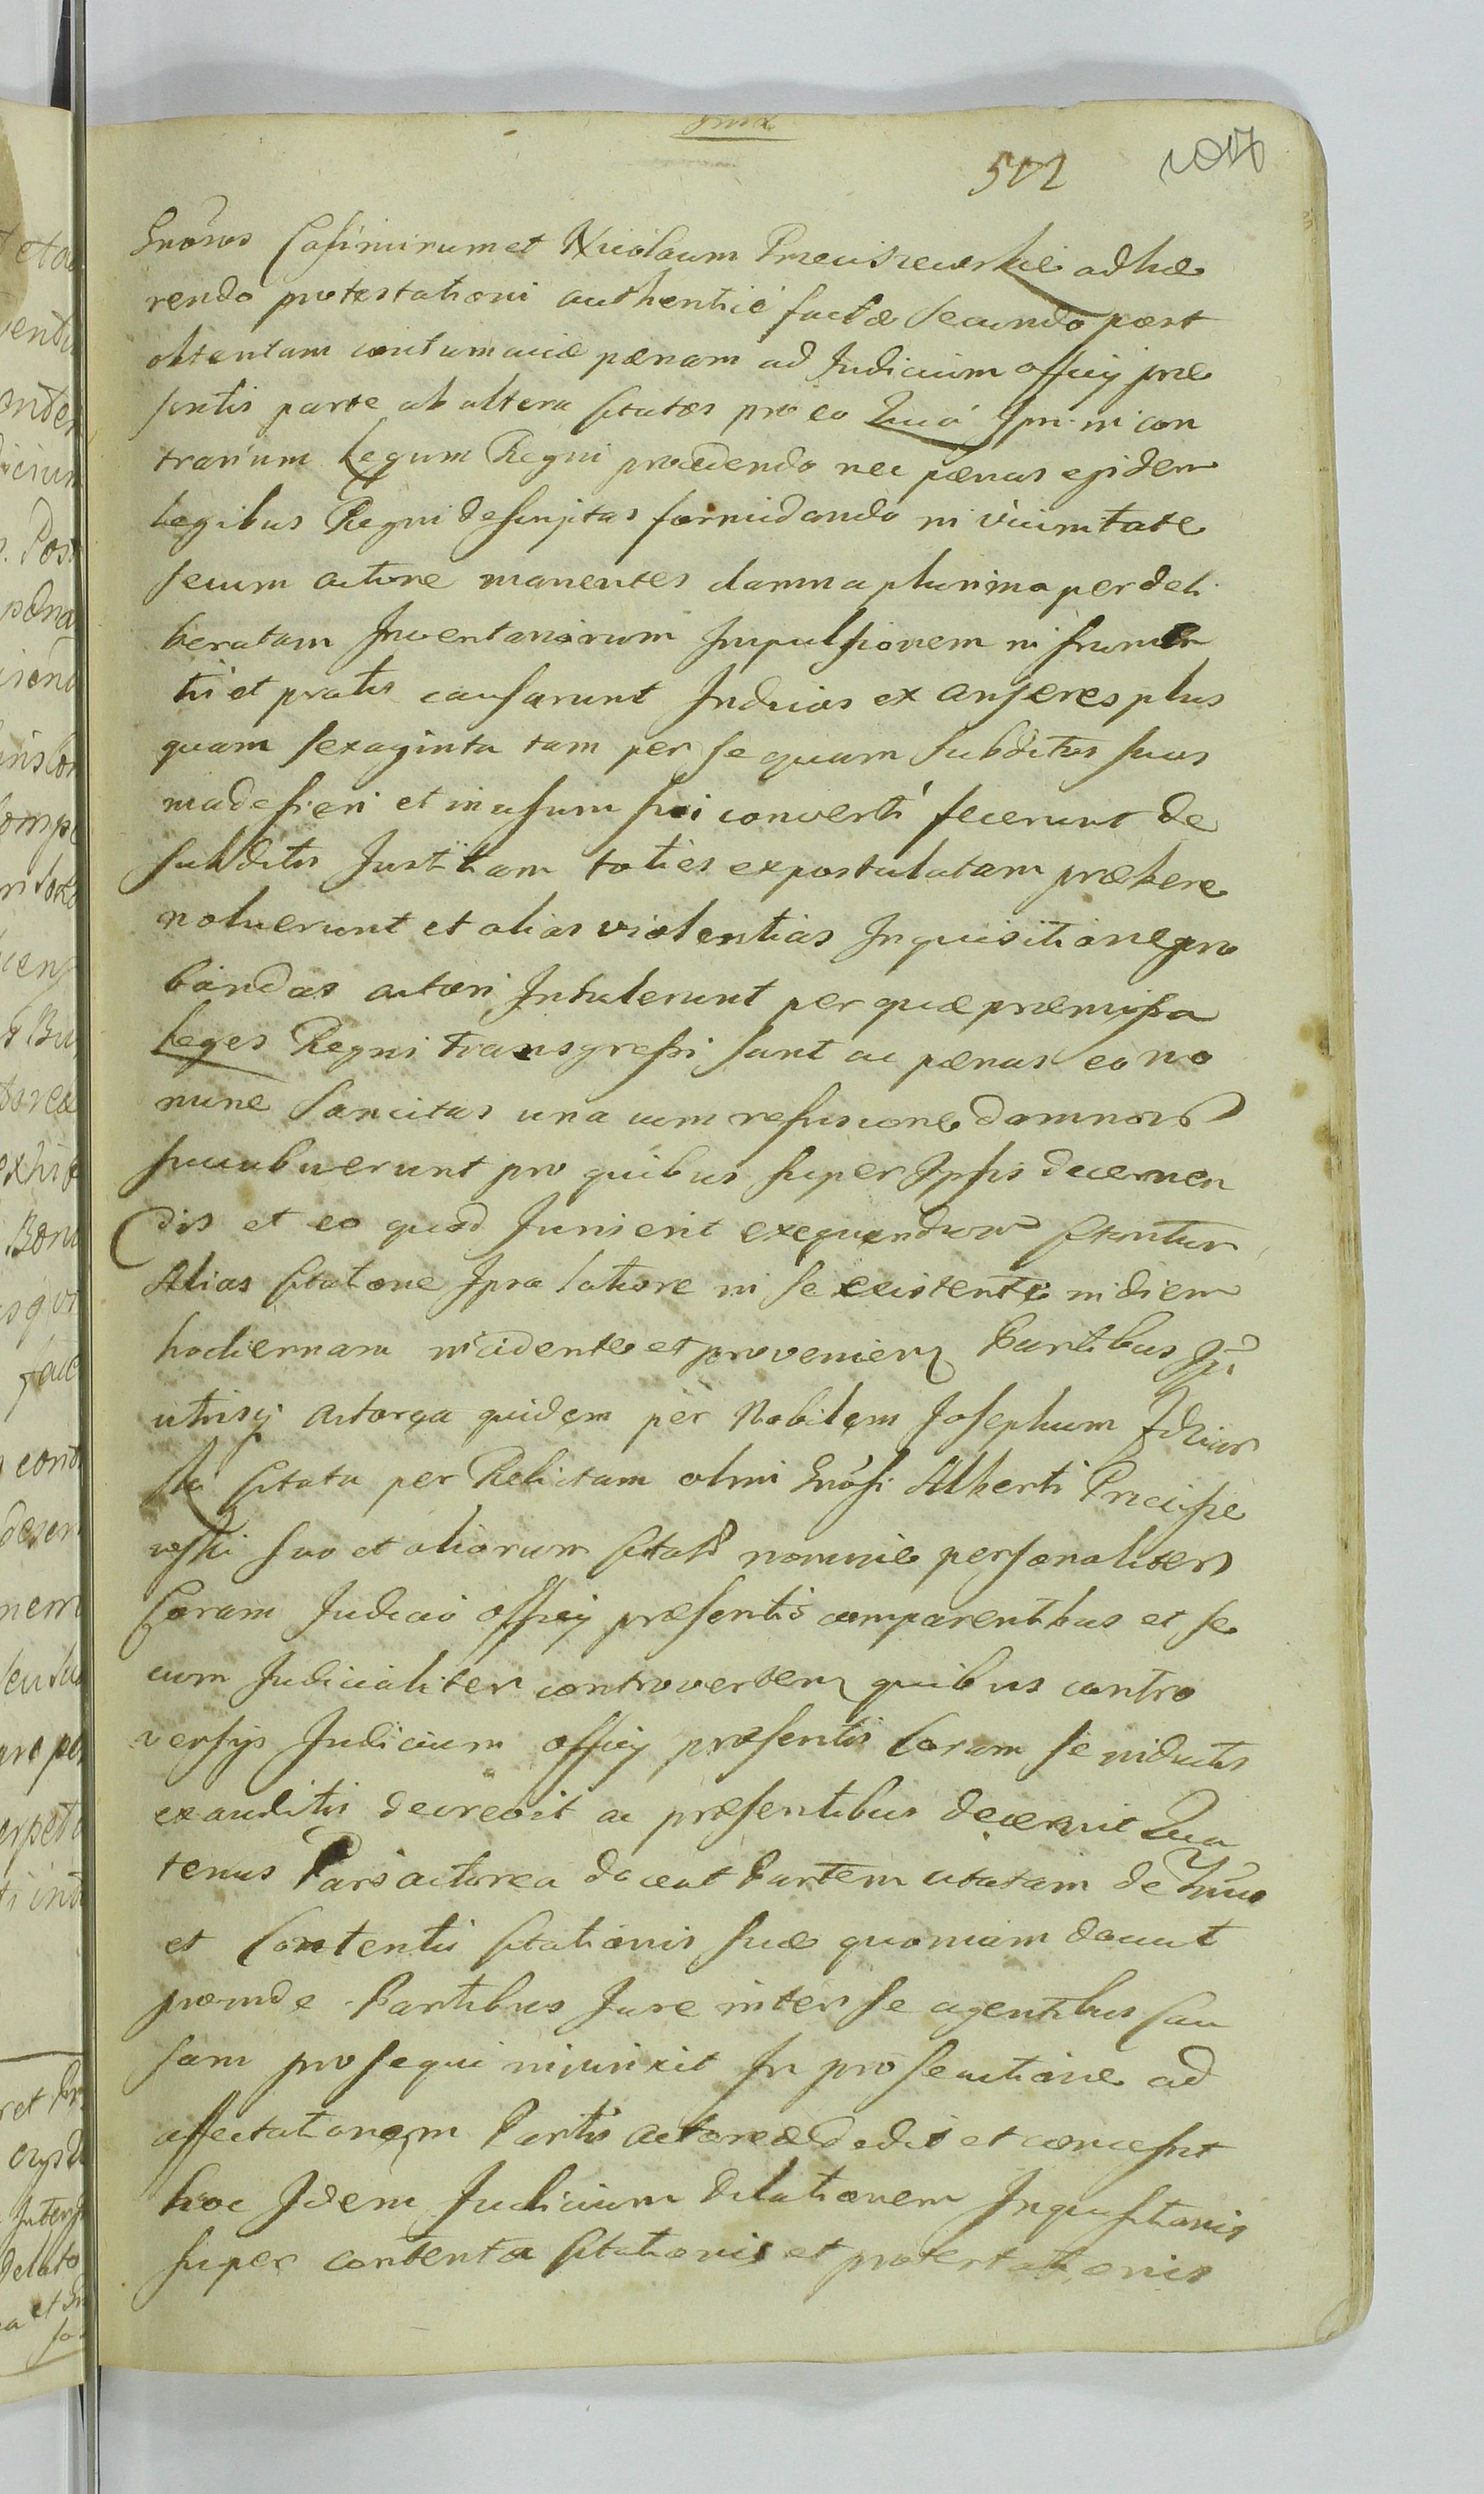 512
Gnosos Casimirum et Nicolaum Pruciszewskie adhæ
rendo protestationi authenticè factæ secundo post
obtentam contumaciæ pænam ad Judicium officij præ
sentis parte ab altera Citatos pro eo Quià Ipsi in con
trarium Legum Regni procedendo nec pænas ejsdem
Legibus Regni descriptas formidando in vicinitate
secum actore manentes damna plurima per deli
beratam Inventariorum Impulsionem in frumen
tis et pratis causarunt Inducias ex anseres plus
quam sexaginta tam per se quam subditos suos
madefieri et in usum sui converti fecerunt de
subditis Justitiam toties expostulatam præbere
noluerunt et alias violentias Inquisitione pro
bandas actori Intulerunt per quæ præmissa
Leges Regni transgressi sunt ac pænas eo no
mine Sancitas una cum refusione damnor
succubuerunt pro quibus super Ipsis decernen
dis et eo quod Juris erit exequendum Citantur
Alias Citatione Ipsa latiore in se existente in diem
hodiernam incidente et provenien Partibus Ipsi
utrisq actorea quidem per Nobilem Josephum
ski Citata per Relictam olim Gnosi Alberti Prucisze
wski suo et aliorum Citator nomine personaliter
Coram Judicio officij præsentis comparentibus et se
cum Judicialiter controverten quibus contro
versijs Judicium officij præsentis Coram se inductis
ex auditis decrevit ac præsentibus decernit Qua
tenus Pars actorea doceat Partem citatam de Termino
et Contentis Citationis suæ quoniam docuit
proinde Partibus Jure inter se agentibus Cau
sam prosequi injunxit In prosecutione ad
affectationem Partis actoreæ dedit et concessit
hoc Idem Judicium dilationem Inquisitionis
super contenta Citationis et protestationis